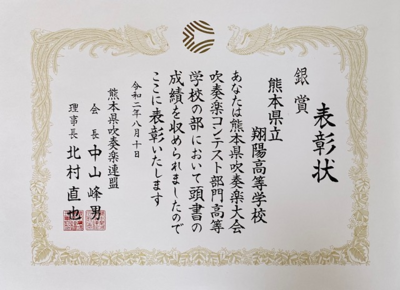 表彰状
銀賞
熊本県立
翔陽高等学校
あなたは熊本県吹奏楽大会
吹奏楽コンテスト部門高等
学校の部において頭書の
成績を収められましたので
ここに表彰いたします
令和二年八月十日
熊本県吹奏楽連盟
会長 中山峰男
理事長 北村直也